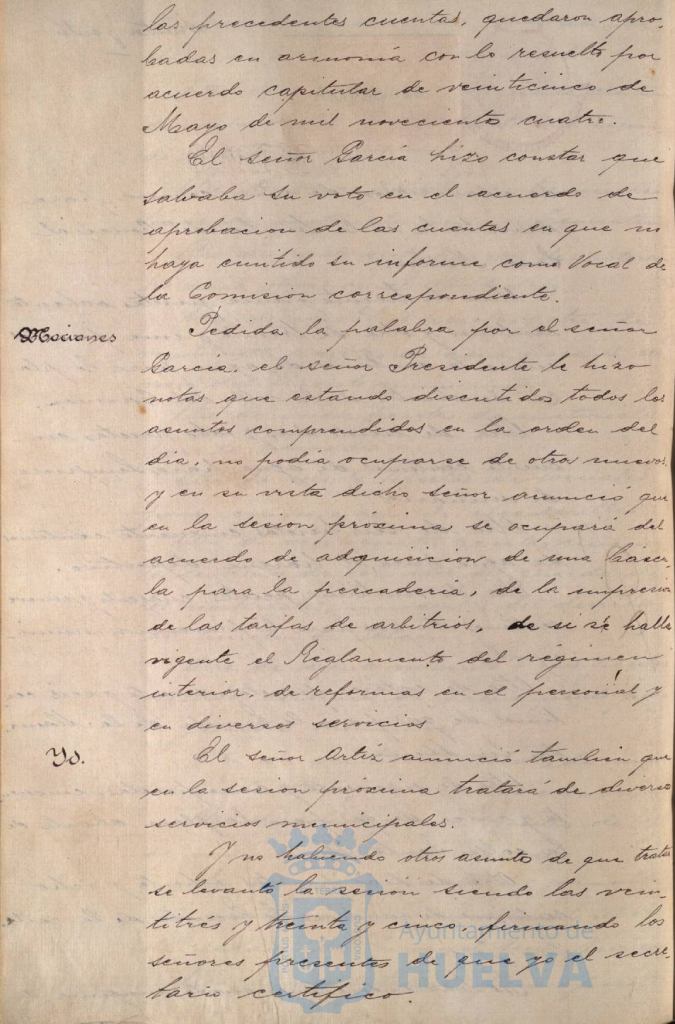 las precedentes cuentas, quedaron apro-
badas en armonía con lo resuelto por
acuerdo capitular de veinticinco de
Mayo de mil novecientos cuatro.
El señor García hizo constar que
salvaba su voto en el acuerdo de
aprobacion de las cuentas en que no
haya emitido su informe como Vocal de
la Comision correspondiente.
Mociones
Pedida la palabra por el señor
García, el señor Presidente le hizo
notar que estando discutidos todos los
asuntos comprendidos en la orden del
dia, no podia ocuparse de otros nuevos
y en su vista dicho señor anunció que
en la sesion próxima se ocupará del
acuerdo de adquisicion de una báscu-
la para la pescaderia, de la impresion
de las tarifas de arbitrios, de si se halla
vigente el Reglamento del régimen
interior, de reformas en el personal y
en diversos servicios
Yd.
El señor Ortíz anunció tambien que
en la sesion próxima tratará de diversos
servicios municipales.
Y no habiendo otros asunto de que tratar
se levantó la sesion siendo las vein-
titrés y treinta y cinco, firmando los
señores presentes de que yo el secre-
tario certifico.
Ayuntamiento de
HUELVA